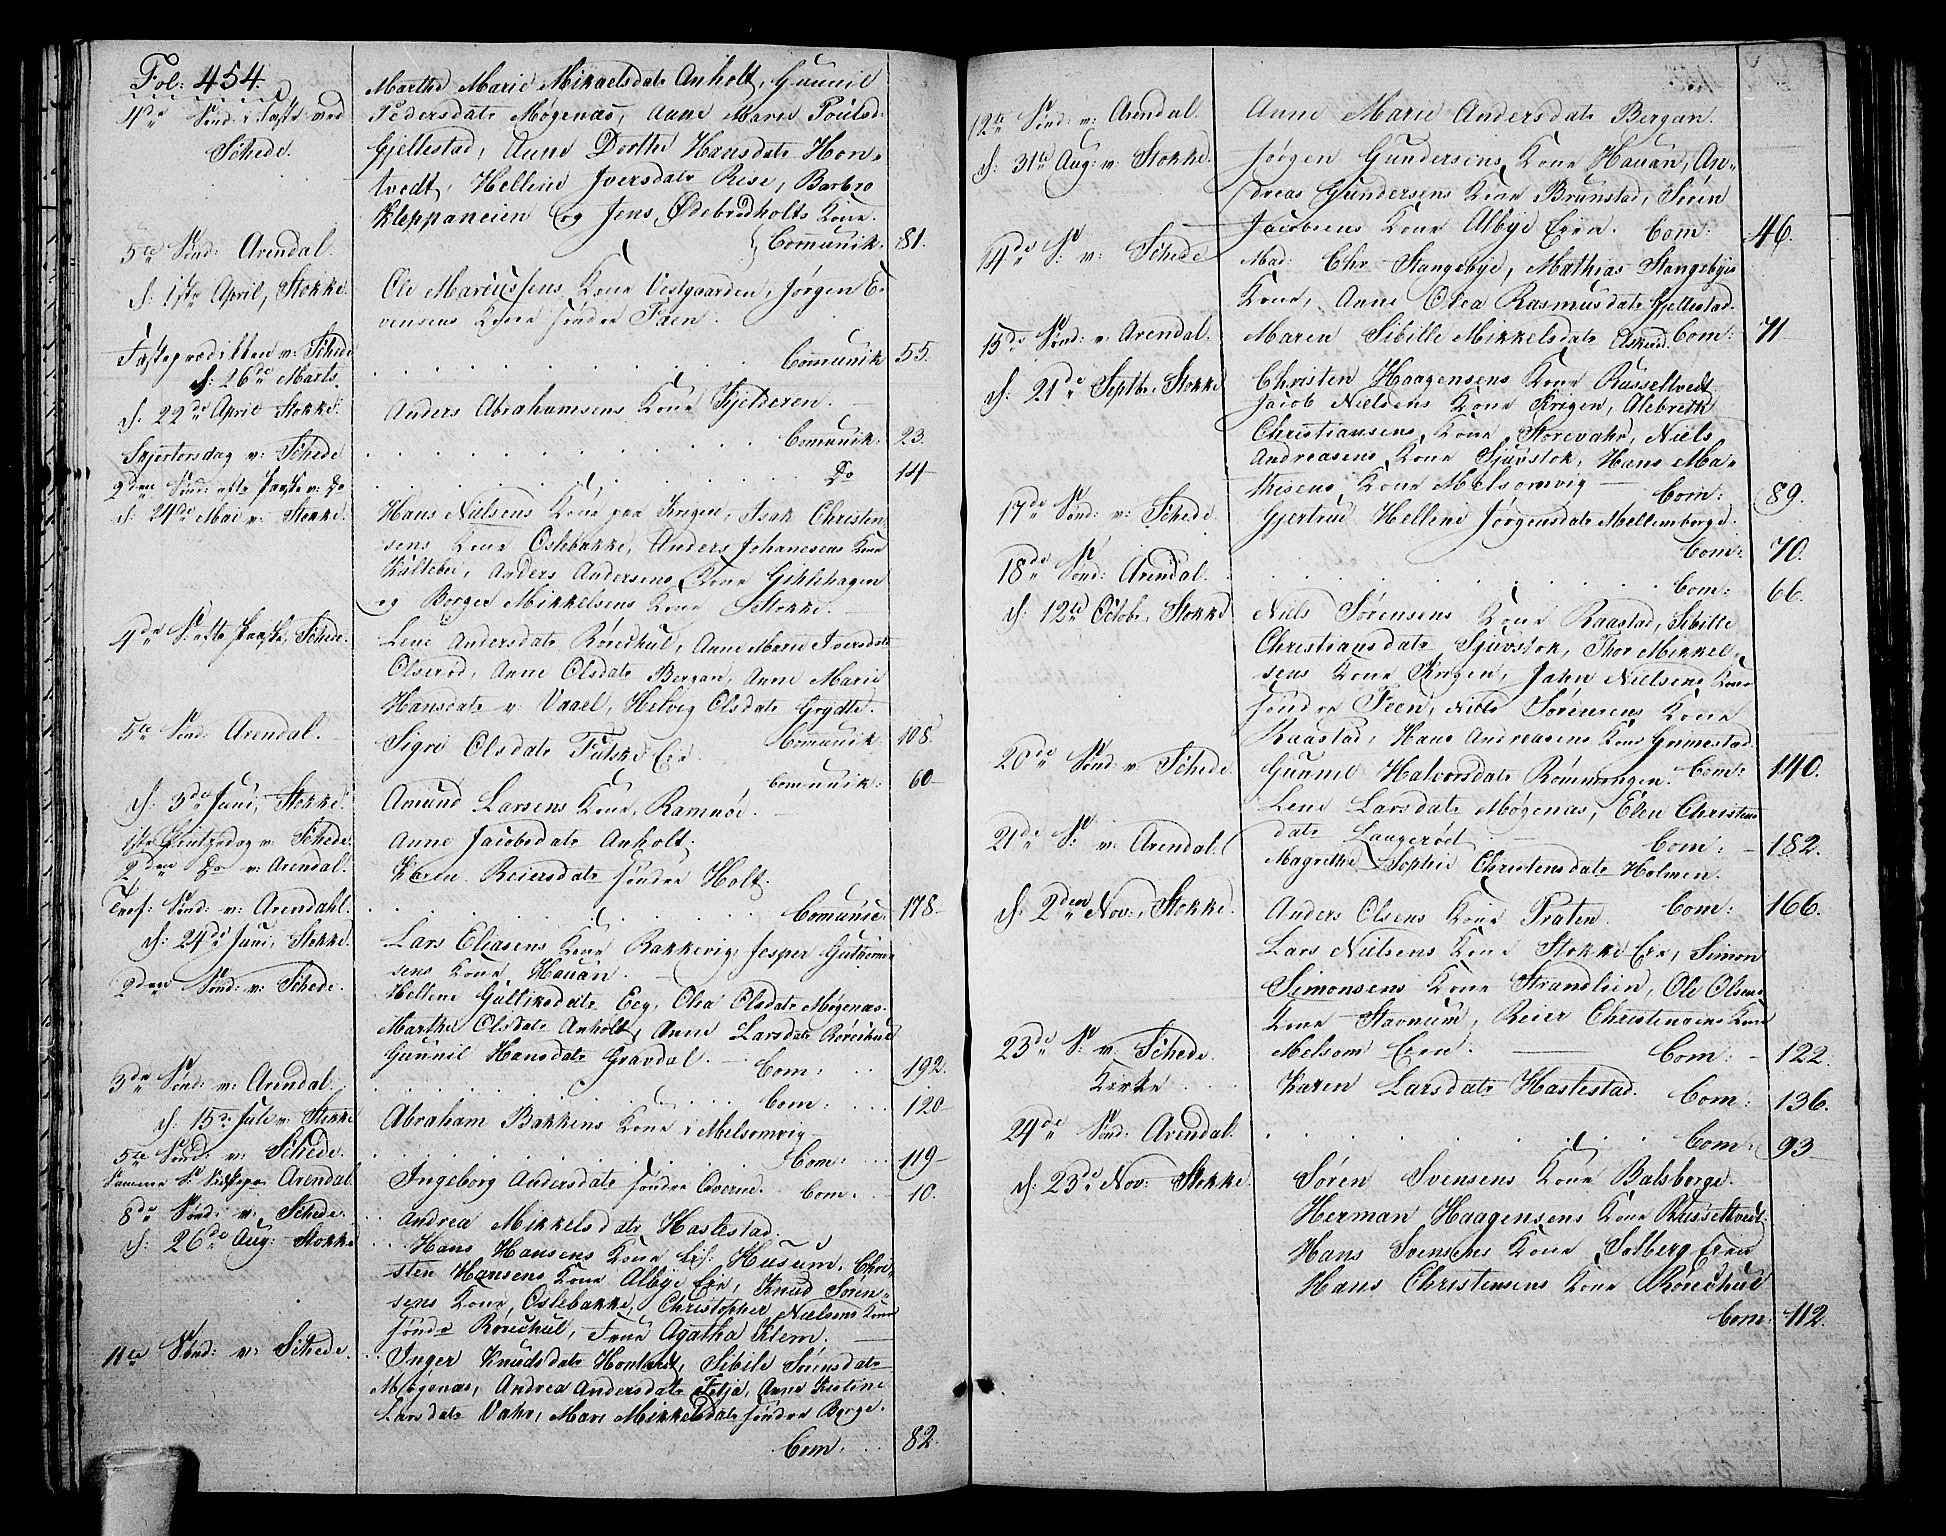 Fol: 454.
4de Sønd: i Faste ved Schede.
Marthe Marie Mikaelsdatr Anholt, Gunnil
Pedersdatr Møgenæs, Anne Marie Poulsd:
Gjellestad, Anne Dorthe Hansdatr Hon-
tvedt, Hellene Iversdatr Rise, Barbro
Kleppaneien og Jens Ødebrødholts Kone.
5te Sønd: Arendal. Comunik: 81.
d: 1ste April, Stokke. Ole Mariussens Kone Vestgaarden, Jørgen E-
vensens Kone søndre Faen.
Fasteprædikken v: Schede
d: 26de Marts. Comunik 55.
d: 22de April Stokke. Anders Abrahamsens Kone Kjelderen.
Skjertorsdag v: Schede Comunik: 23.
2den Sønd: efter Paaske v: Do Do 14
d: 24de Mai v: Stokke. Hans Nielsens Kone paa Krigen, Isak Christen
sens Kone Oslebakke, Anders Johanesens Kone
Kultebei, Anders Andersens Kone Gihlehagen
og Borger Mikkelsens Kone Stokke.
4de S: efter Paaske, Schede. Lene Andersdatr Rørechul, Anne Marie Iversdatr
Olserød, Anne Olsdatr Bergan, Anne Marie
Hansdatr v Vaael, Helvig Olsdatr Grydte.
5te Sønd: Arendal. Comunik 108.
Sigri Olsdatr Fulske Eie
Comunik: 60
d: 3de Juni, Stokke. Amund Larsens Kone, Ramnøe.
1ste Pintsedag v: Schede. Anne Jacobsdatr Anholt.
2den Do v: Arendal. Karen Reiersdatr søndre Holt.
Tref: Sønd: v: Arendahl. Comunic: 178
d: 24de Juni, Stokke. Lars Eliasens Kone Rakkevig, Jesper Guthorm
sens Kone Hauan.
2den Sønd: v: Schede. Hellene Gulliksdatr Eeg, Olea Olsdatr Møgenæs.
Marthe Olsdatr Anholt, Anne Larsdatr Rørechul
Gunnil Hansdatr Gravdal. Com: 192.
3de Sønd: v: Arendal. Com: 120
d: 15de Juli v: Stokke Abraham Bakkens Kone i Melsomvig
5te Sønd: v: Schede. Com: 119
Samme S: Arendal. Ingeborg Andersdatr søndre Qverne. Com: 10.
8de Sønd: v: Schede. Andrea Mikkelsdatr Hastestad.
d: 26de Aug: Stokke Hans Hansens Kone Husum, Chri-
sten Hansens Kone Albye Eie, Knud Søren-
sens Kone, Oslebakke, Christopher Nielsens Kone
søndr Rorechul, Frue Agatha Klem.
11te Sønd: v: Schede. Inger Knudsdatr Hontvedt, Sibile Sørensdatr
Møgenæs, Andrea Andersdatr Felja, Anne Kistine
Larsdatr Vahr, Mari Mikkelsdatr søndre Berge.
Com: 82.
12te Sønd: v: Arendal. Anne Marie Andersdatr Bergan.
d: 31te Aug: v: Stokke. Jørgen Gundersens Kone Hauan, An-
dreas Gundersens Kone Brunstad, Søren
Jacobsens Kone Albye Eien. Com: 46.
14de S: v: Schede Mad: Chr Stangebye, Mathias Stangebyes
Kone, Anne Olea Rasmusdatr Gjellestad.
15de Sønd: v: Arendal. Maren Sibille Mikkelsdatr Askerud. Com: 71
d: 21de Septbr, Stokke Christen Haagensens Kone Russeltvedt
Jacob Nielsens Kone Krigen, Alebreth
Christiansens Kone Storevahr, Niels
Andreasens Kone Sjuvstok, Hans Ma-
thisens Kone Melsomvig Com: 89.
17de Sønd: v: Schede Gjertrud Hellene Jørgensdatr Mellemborge.
Com: 70.
18de Sønd: Arendal. Com: 66.
d: 12te Octobr, Stokke Niels Sørensens Kone Raastad, Sibille
Christiansdatr Sjuvstok, Thor Mikkel-
sens Kone Krigen, Jahn Nielsens Kone
søndre Feen, Niels Sørensens Kone
Raastad, Hans Andreasens Kone Grimestad
20de Sønd: v: Schede. Gunnil Halvorsdatr Rømmingen. Com: 140.
Lene Larsdatr Møgenæs, Elen Christens
datr Laugerød
21de S: v: Arendal. Com: 182.
Magrethe Sophie Christensdatr Holmen.
d: 2den Nov:, Stokke. Anders Olsens Kone Praten. Com: 166.
Lars Nielsens Kone Stokke Eie, Simon
Simonsens Kone Strandlien, Ole Olsens
Kone Stavnum, Reier Christensens Kone
23de S: v: Schede. Melsom Eien. Com: 122
Kirke Karen Larsdatr Hastestad. Com: 136.
24de Sønd: Arendal. Com: 93
d: 23de Nov: Stokke. Søren Svensens Kone Balsborge.
Herman Haagensens Kone Russeltvedt.
Hans Svensens Kone Solberg Eien
Hans Christensens Kone Rørechul
Com: 112.